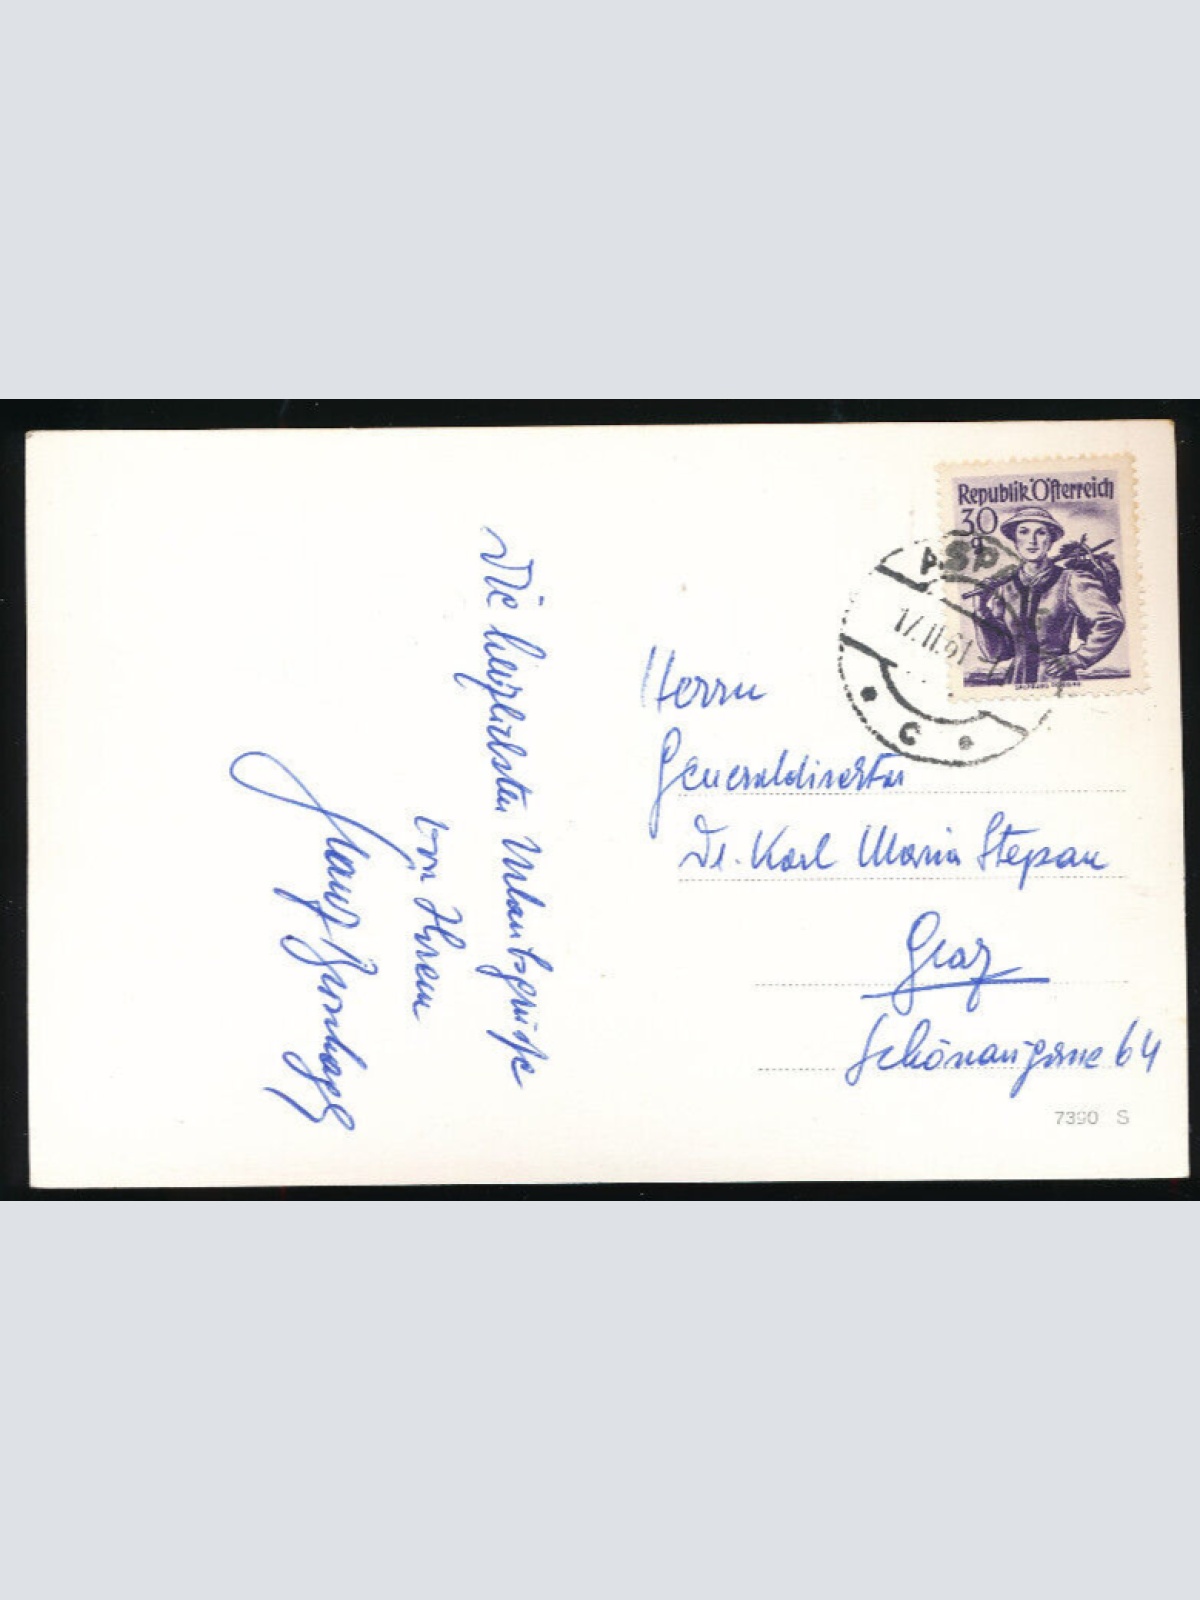 Die herzlichsten Urlaubsgrüße
von Ihrem
Hans
Republik Österreich
30
g
ASP
17.II.61
C
Herrn
Generaldirektor
Dr. Karl Maria Stepan
Graz
Schönaugasse 64
7390 S